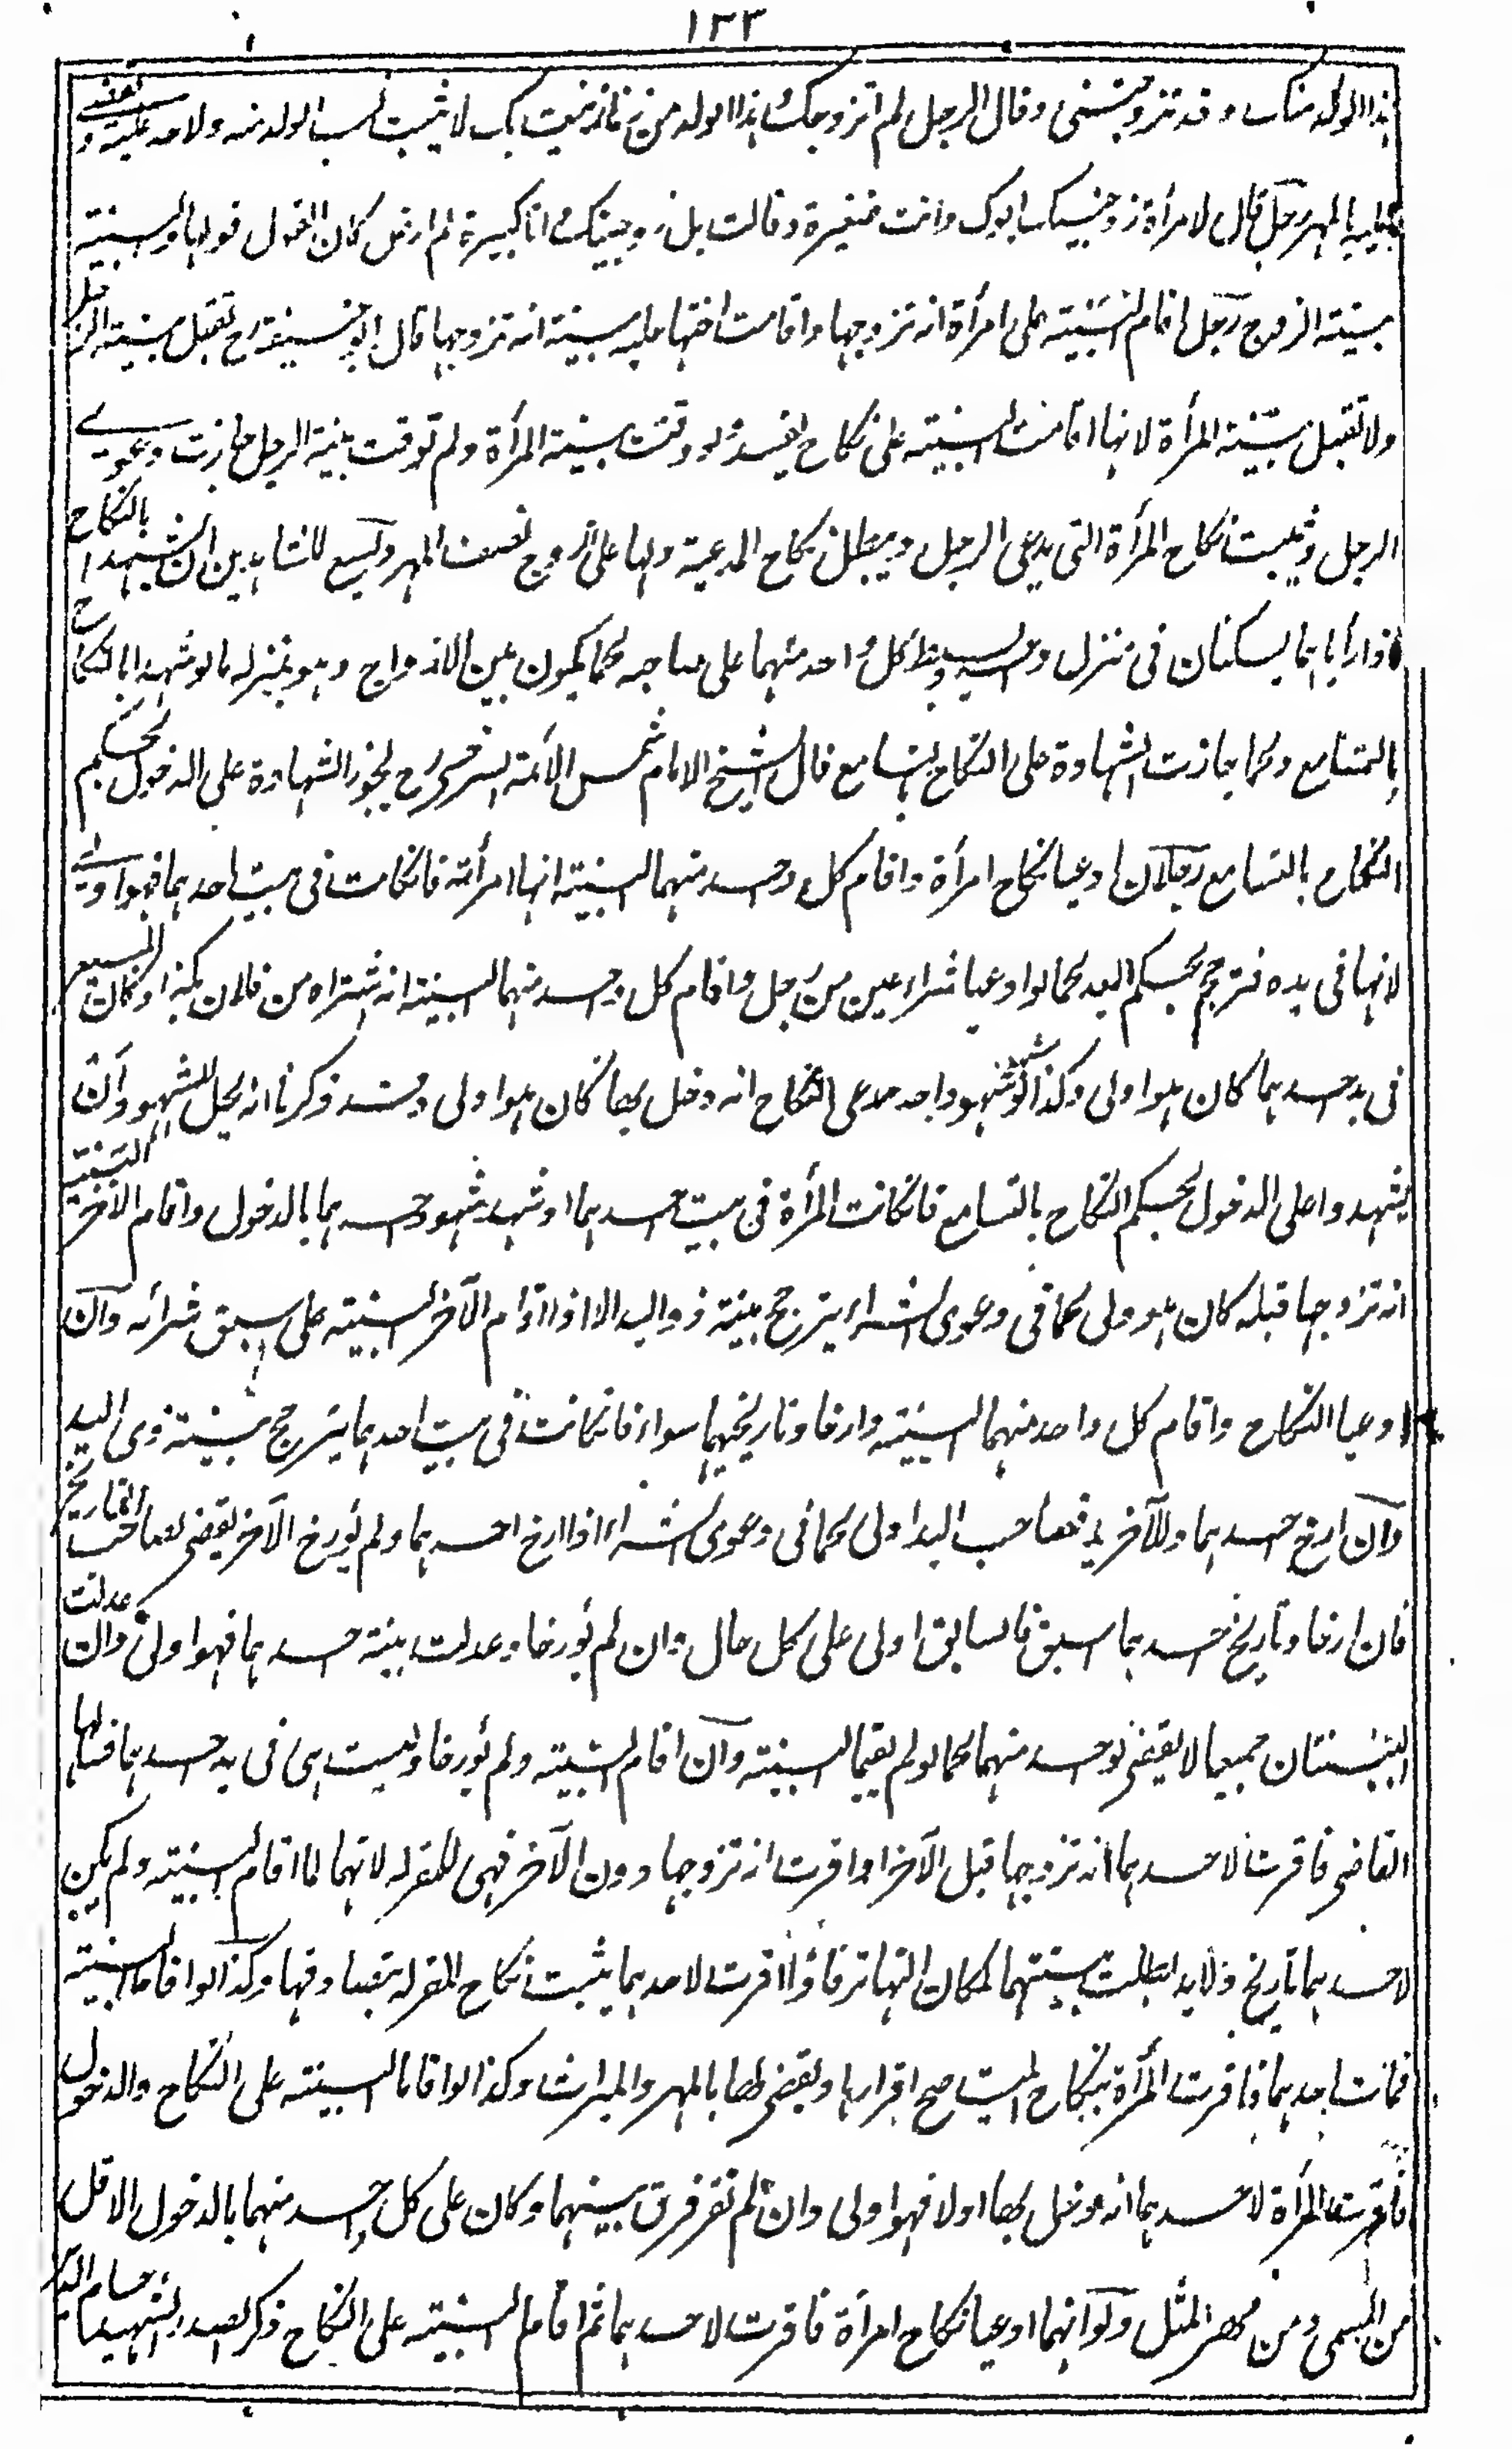 ١٣٣
هذا الولد منك وقد تزوجتنى وقال الرجل لم اتزوجك هذا الولد من زنا زنيت بك لا يثبت نسب الولد منه ولا حد عليه و يقضى
عليه بالمهر رجل قال لامرأة زوجنيك ابوك وانت صغيرة وقالت بل زوجنيك وانا كبيرة لم ارض كان القول قولها والبينة
بينة الزوج رجل اقام البينة على امرأة انه تزوجها واقامت اختها عليه بينة انه تزوجها قال ابو حنيفة رح تقبل بينة الرجل
ولا تقبل بينة المرأة لانها اقامت البينة على نكاح ولو وقتت بينة المرأة ولم توقت بينة الرجل جازت دعوى
الرجل ويثبت نكاح المرأة التى يدعى الرجل ويبطل نكاح المدعية ولها على الزوج نصف المهر ويسع للشاهدين ان يشهدا بالنكاح
اذا رأياهما يسكنان فى منزل وينبسط كل واحد منهما على صاحبه كما يكون بين الازواج وهو بمنزلة ما لو شهدا بالنكاح
بالتسامع وكما جازت الشهادة على النكاح بالتسامع قال الشيخ الامام شمس الأئمة السرخسى رح يجوز الشهادة على الدخول بحكم
النكاح بالتسامع رجلان ادعيا نكاح امرأة واقام كل واحد منهما البينة انها امرأته فان كانت فى بيت احدهما فهو اولى
لانها فى يده فترجح بحكم اليد كما لو ادعيا شراء عين من رجل واقام كل واحد منهما البينة انه اشتراه من فلان بكذا وكان المبيع
فى يد احدهما كان هو اولى وكذا لو شهد شهود احد مدعى النكاح انه دخل بها كان هو اولى وقد ذكرنا انه يحل للشهود أن
يشهدوا على الدخول بحكم النكاح بالتسامع فان كانت المرأة فى بيت احدهما او شهد شهود احدهما بالدخول واقام الآخر البينة
انه تزوجها قبله كان هو اولى كما فى دعوى الشراء يترجح بينة ذو اليد الا اذا اقام الآخر البينة على سبق شرائه وان
ادعيا النكاح واقام كل واحد منهما البينة وارخا وتاريخهما سواء فان كانت فى بيت احدهما يترجح بينة ذى اليد
وان ارخ احدهما وللآخر يد فصاحب اليد اولى كما فى دعوى الشراء اذا ارخ احدهما ولم يؤرخ الآخر يقضى لصاحب التاريخ
فان ارخا وتاريخ احدهما اسبق فالسابق اولى على كل حال وان لم يؤرخا وعدلت بينة احدهما فهو اولى وان عدلت
البينتان جميعا لا يقضى لواحد منهما كما لو لم يقيما البينة وان اقاما البينة ولم يؤرخا وليست هى فى يد احدهما فسألها
القاضى فاقرت لاحدهما أنه تزوجها قبل الآخر او اقرت انه تزوجها دون الآخر فهى للمقر له لانهما لما اقاما البينة ولم يكن
لاحدهما تاريخ ولا يد بطلت بينتهما لمكان التهاتر فاذا اقرت لاحدهما يثبت نكاح المقر له بتصادقهما وكذا لو اقاما البينة
فمات احدهما فاقرت المرأة بنكاح الميت صح اقرارها ويقضى لها بالمهر والميراث وكذا لو اقاما البينة على النكاح والدخول
فاقرت المرأة لاحدهما انه دخل بها اولا فهو اولى وان لم تقر فرق بينهما وكان على كل واحد منهما بالدخول الاقل
من المسمى ومن مهر المثل ولو انهما ادعيا نكاح امرأة فاقرت لاحدهما ثم اقاما البينة على النكاح ذكر الصدر الشهيد حسام الدين